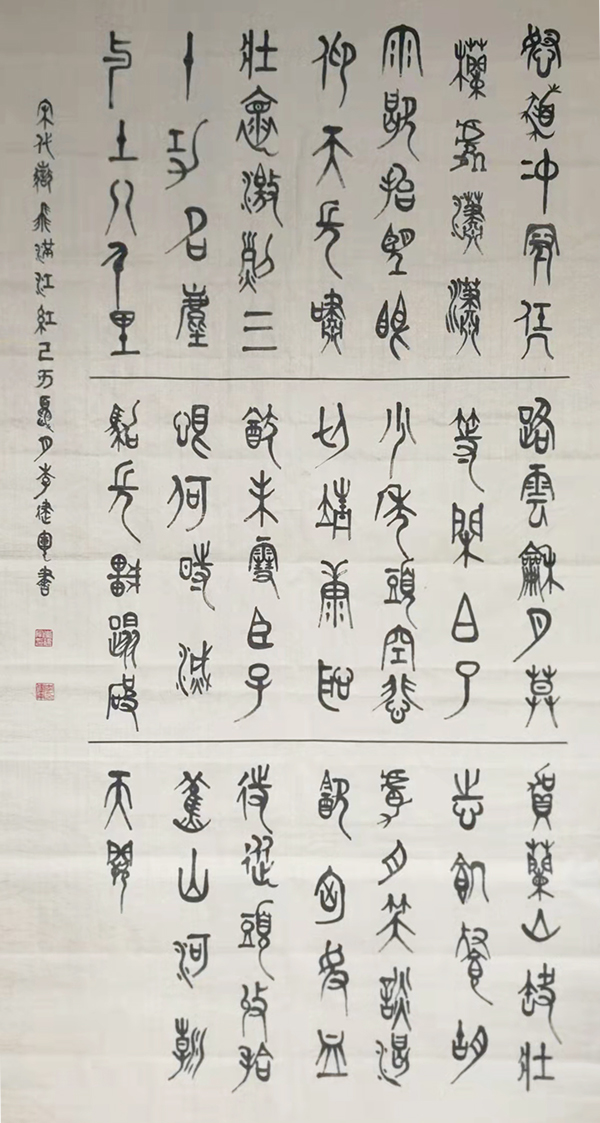 怒髮冲冠凭
欄處瀟瀟
雨歇抬望眼
仰天長嘯
壯懷激烈三
十功名塵
与土八千里
路雲龢月莫
等閑白了
少年頭空悲
切靖康恥
猶未雪臣子
恨何時滅
駕長車踏破
賀蘭山缺壯
志飢餐胡
虜肉笑談渴
飲匈奴血
待從頭收拾
舊山河朝
天闕
宋代嶽飛滿江紅己亥夏月李建軍書